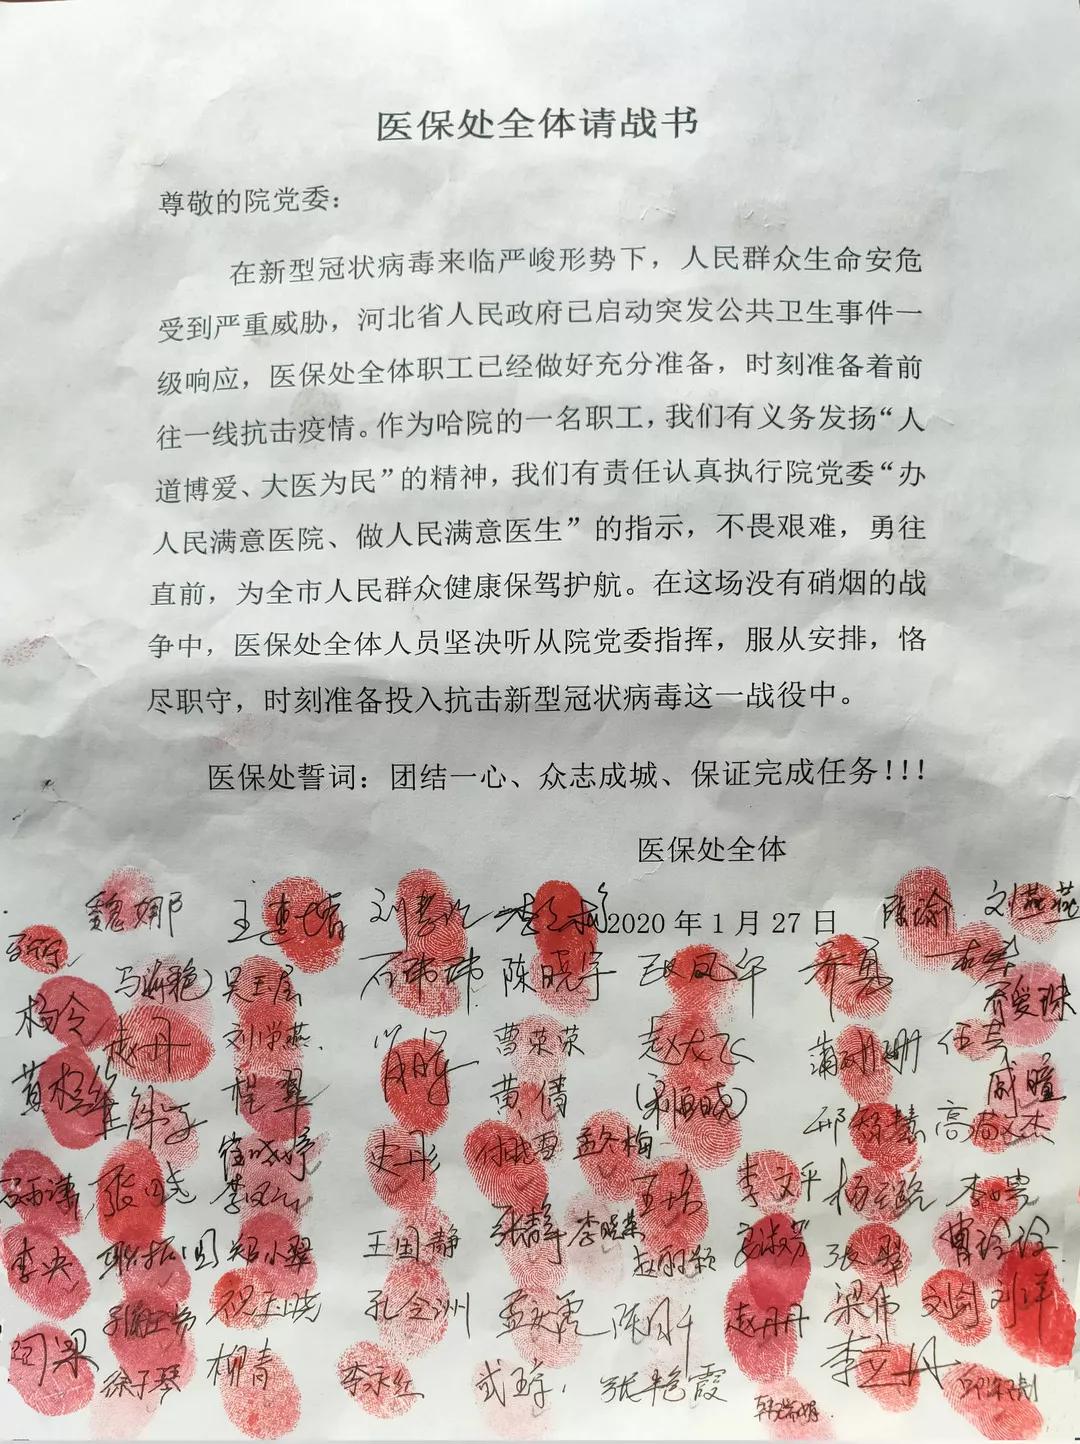 医保处全体请战书
尊敬的院党委：
在新型冠状病毒来临严峻形势下，人民群众生命安危
受到严重威胁，河北省人民政府已启动突发公共卫生事件一
级响应，医保处全体职工已经做好充分准备，时刻准备着前
往一线抗击疫情。作为哈院的一名职工，我们有义务发扬“人
道博爱、大医为民”的精神，我们有责任认真执行院党委“办
人民满意医院、做人民满意医生”的指示，不畏艰难，勇往
直前，为全市人民群众健康保驾护航。在这场没有硝烟的战
争中，医保处全体人员坚决听从院党委指挥，服从安排，恪
尽职守，时刻准备投入抗击新型冠状病毒这一战役中。
医保处誓词：团结一心、众志成城、保证完成任务！！！
医保处全体
2020 年 1 月 27 日
魏娜 陈瑜 刘燕燕
杨令 马海艳 石玮玮 陈晓宇 乔真 乔爱珠
赵丹 曹荣荣 赵大飞 蒲珊珊 伍芸
程翠 黄倩 戚瞳
史彤 付晓雪 孟冬梅 邢智慧 高尚文杰
张晓 王培 李文平
李央 郑小翠 王国静 张静 赵丽颖 高淑芳 张翠 曹玲玲
孔令洲 陈丹 赵丹丹 梁伟 刘洋
闫果 徐子琴 柳青 李永红 武琼 张艳霞 李立丹